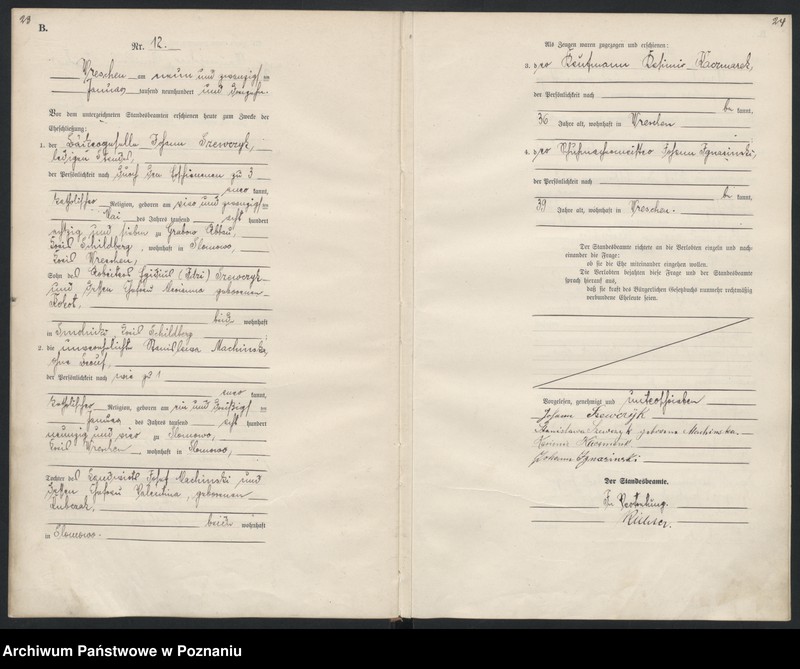 23
B.
Nr. 12.
Wreschen am neun und zwanzigsten
Januar tausend neunhundert und dreizehn.
Vor dem unterzeichneten Standesbeamten erschienen heute zum Zwecke der
Eheschließung:
1. der Johann Szewczyk,
ledigen Standes,
der Persönlichkeit nach durch den zu 3
kannt,
katholischer Religion, geboren am vier und zwanzigsten
Mai des Jahres tausend acht hundert
achtzig und sieben zu Grabow
Kreis Schildberg, wohnhaft in Slomowo,
Kreis Wreschen,
Sohn des Arbeiters Szewczyk
und dessen Ehefrau Marianna geborenen
beide wohnhaft
in Kreis Schildberg
2. die unverehelichte Stanislawa Machinska,
ohne Beruf,
der Persönlichkeit nach wie zu 1
kannt,
katholischer Religion, geboren am ein und dreißigsten
Januar des Jahres tausend acht hundert
neunzig und vier zu Slomowo,
Kreis Wreschen wohnhaft in Slomowo,
Tochter des Landwirts Josef Machinski und
dessen Ehefrau Valentina, geborenen
beide wohnhaft
in Slomowo.
24
Als Zeugen waren zugezogen und erschienen:
3. der Kaufmann Kasimir Kaczmarek,
der Persönlichkeit nach
be kannt,
36 Jahre alt, wohnhaft in Wreschen
4. der Schuhmachermeister Johann Ignasinski,
der Persönlichkeit nach
be kannt,
39 Jahre alt, wohnhaft in Wreschen.
Der Standesbeamte richtete an die Verlobten einzeln und nach-
einander die Frage:
ob sie die Ehe miteinander eingehen wollen.
Die Verlobten bejahten diese Frage und der Standesbeamte
sprach hierauf aus,
daß sie kraft des Bürgerlichen Gesetzbuchs nunmehr rechtmäßig
verbundene Eheleute seien.
Vorgelesen, genehmigt und unterschrieben
Johann Szewczyk
Stanislawa Szewczyk geborene Machinska.
Kazimir Kaczmarek
Johann Ignasinski
Der Standesbeamte.
In Vertretung.
Archiwum Państwowe w Poznaniu